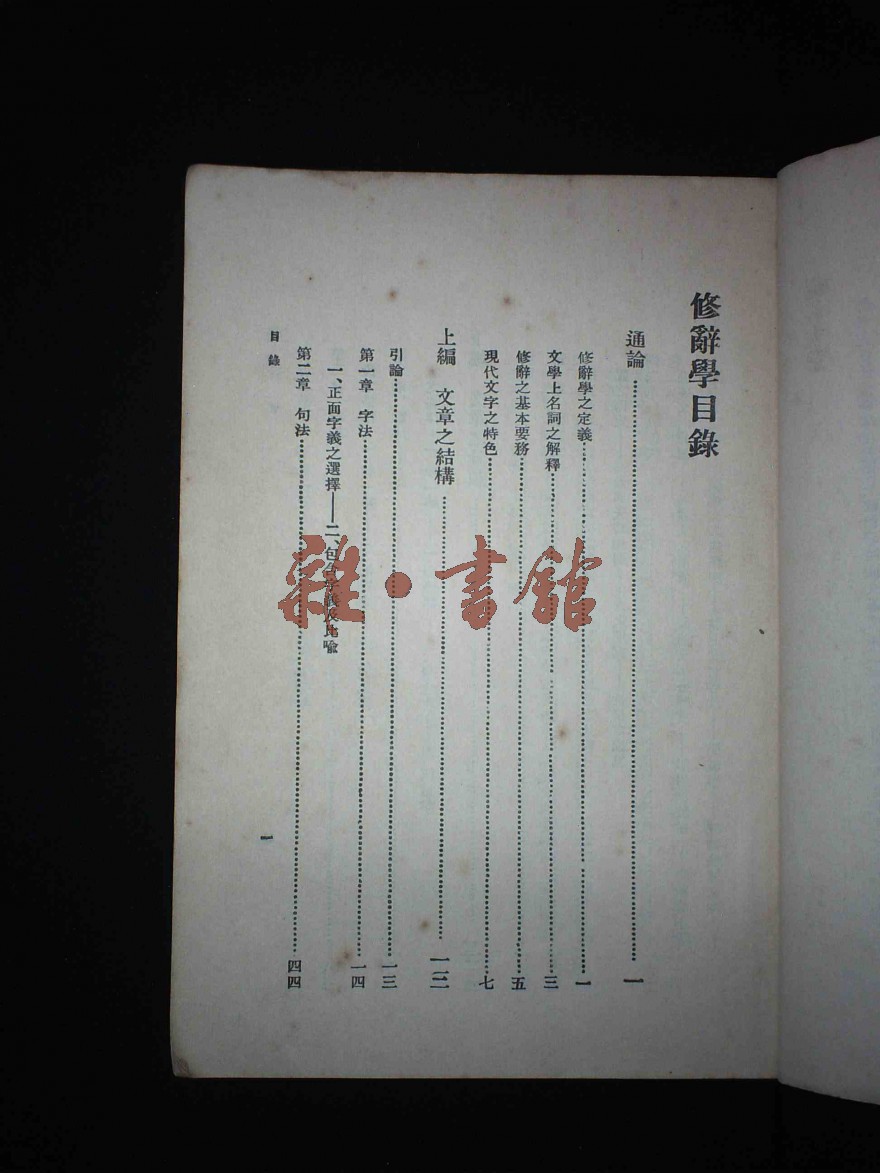 修辭學目錄
通論……………………一
修辭學之定義……………………一
文學上名詞之解釋……………………三
修辭之基本要務……………………五
現代文字之特色……………………七
上編 文章之結構……………………一三
引論……………………一三
第一章 字法……………………一四
一、正面字義之選擇——二、包含字義及比喩
第二章 句法……………………四四
目錄
一
雜·書館